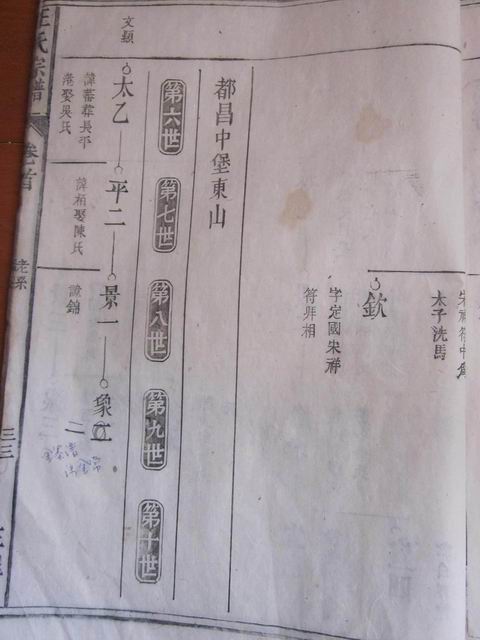 宋祥符中爲
太子洗馬
欽
字定國宋祥
符拜相
都昌中堡東山
第六世
第七世
第八世
第九世
第十世
文顯
太乙
平二
景一
象
諱蕃舉長平
港娶吳氏
諱楨娶陳氏
諱鏞
二
王氏宗譜
卷首
老系
三三